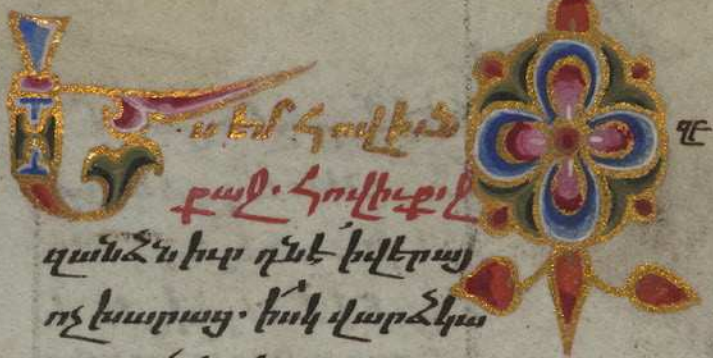 Ես եմ հովիւն
քաջ. հովիւ քաջ
զանձն իւր դնէ ի վերայ
ոչխարաց. իսկ վարձկա